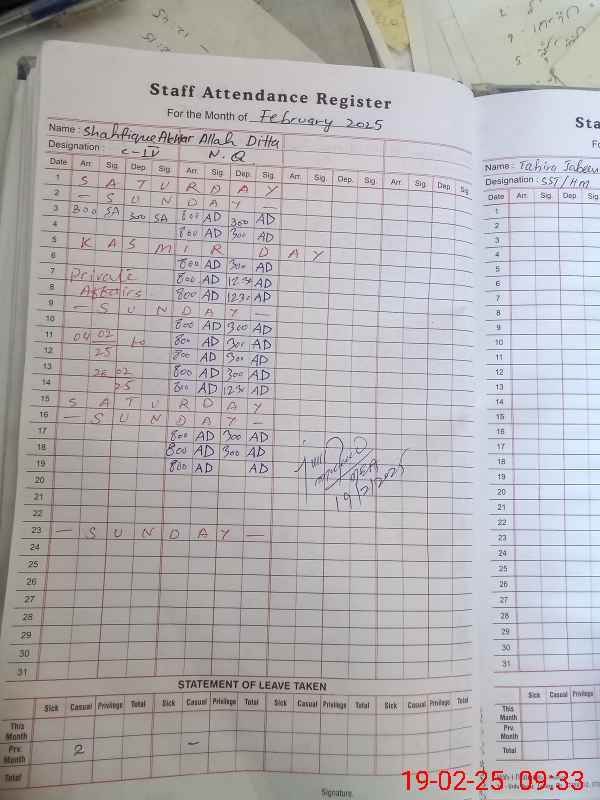 Staff Attendance Register
For the Month of February 2025
Name: Shahfique Akhtar Allah Ditta
Designation: C-IV N.Q.
Date Arr. Sig. Dep. Sig. Arr. Sig. Dep. Sig. Arr. Sig. Dep. Sig. Arr. Sig. Dep. Sig.
1 S A T U R D A Y
2 — S U N D A Y —
3 800 SA 300 SA 800 AD 300 AD
4 800 AD 300 AD
5 K A S M I R D A Y
6 800 AD 300 AD
7 Private 800 AD 1230 AD
8 Affairs 800 AD 1230 AD
9 — S U N D A Y —
10 800 AD 300 AD
11 04 02 to 800 AD 300 AD
12 25 800 AD 300 AD
13 26 02 800 AD 300 AD
14 25 800 AD 1230 AD
15 S A T U R D A Y
16 — S U N D A Y —
17 800 AD 300 AD
18 800 AD 300 AD
19 800 AD AD
MEA
19/2/2025
20
21
22
23 — S U N D A Y —
24
25
26
27
28
29
30
31
STATEMENT OF LEAVE TAKEN
Sick Casual Privilege Total Sick Casual Privilege Total Sick Casual Privilege Total Sick Casual Privilege Total
This Month
Prv. Month 2 –
Total
Signature.
Sta
Name: Tahira Jabeen
Designation: SST/HM
Date Arr. Sig. Dep. Sig.
1
2
3
4
5
6
7
8
9
10
11
12
13
14
15
16
17
18
19
20
21
22
23
24
25
26
27
28
29
30
31
Sick Casual Privilege Total
This Month
Prv. Month
Total
19-02-25 09:33